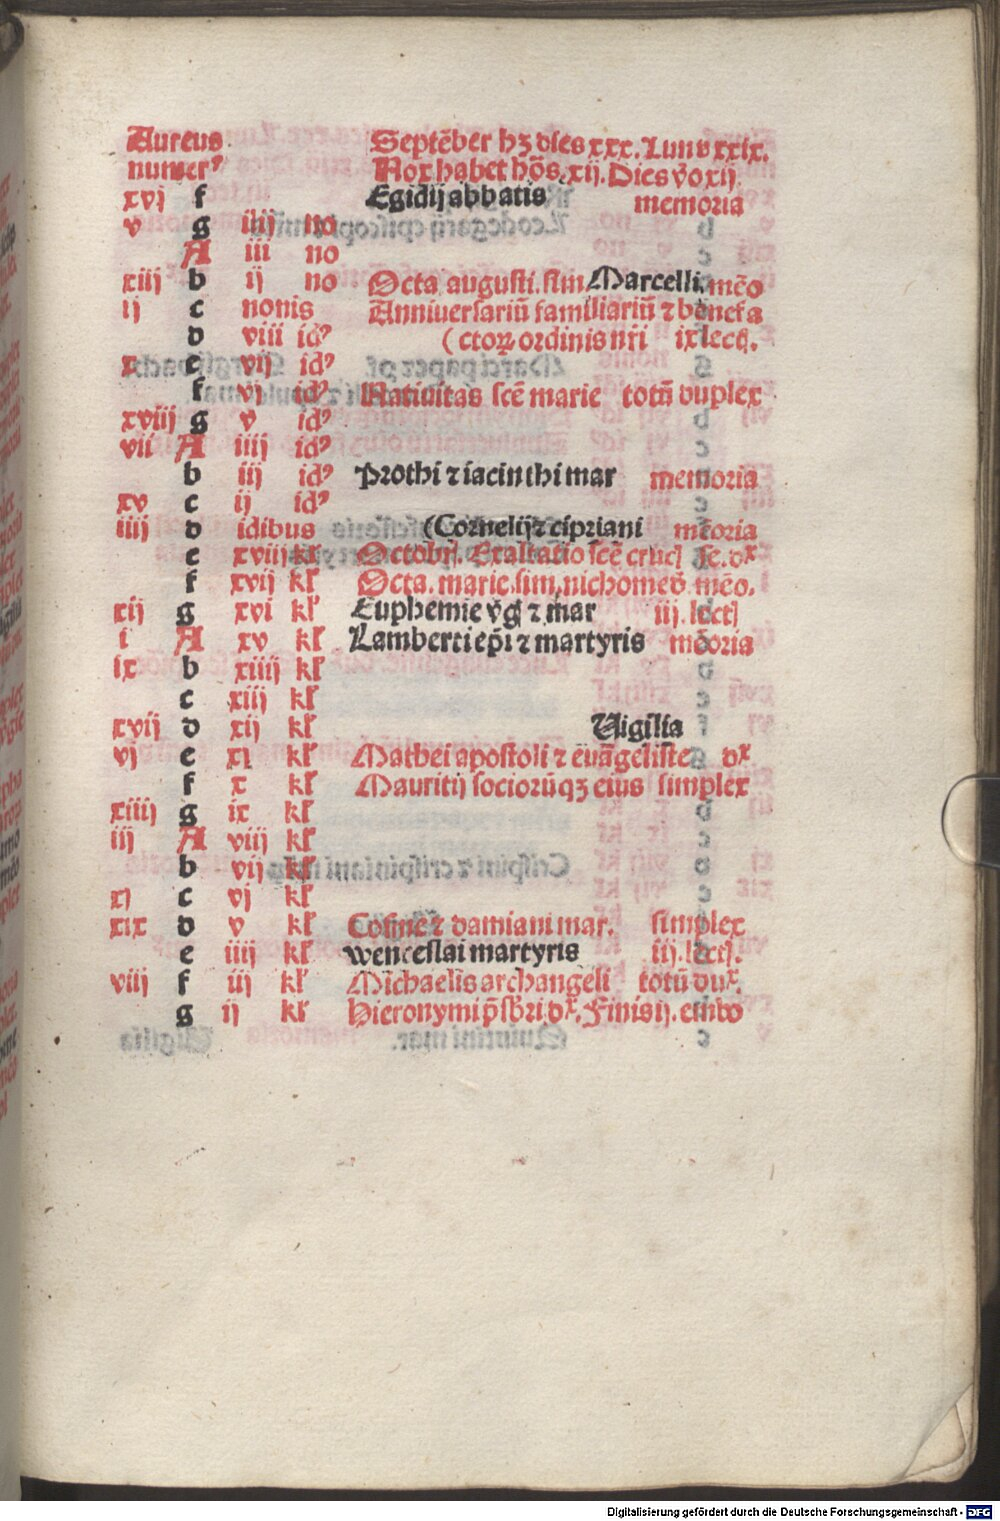 Aureus Septēber hꝫ dies xxx. Luna xxix.
numerꝰ Nox habet hōs. xij. Dies v̄o xij
xvj f Egidij abbatis memoria
v g iiij no
A iii no
xiij b ij no Octa augusti. sim Marcelli. mēo
ij c nonis Anniuersariū familiariū ⁊ benefa
d viii idꝰ (ctoꝝ ordinis nr̄i ix lecꝭ.
x e vij idꝰ
f vj idꝰ Natiuitas scē marie totū duplex
xviij g v idꝰ
vii A iiij idꝰ
b iij idꝰ Prothi ⁊ iacinthi mar memoria
xv c ij idꝰ
iiij d idibus (Cornelij ⁊ cipriani mēoria
e xviij kł Octobꝭ. Exaltatio scē crucꝭ se. dx
f xvij kł Octa. marie. sim. nichomed̄. mēo.
xij g xvi kł Euphemie v̄gꝭ ⁊ mar iij. lectꝭ
i A xv kł Lamberti ep̄i ⁊ martyris mēoria
ix b xiiij kł
c xiij kł
xvij d xij kł Uigilia
vj e xj kł Mathei apostoli ⁊ euāgeliste dx
f x kł Mauritij sociorūqꝫ eius simplex
xiiij g ix kł
iij A viij kł
b vij kł
xj c vj kł
xix d v kł Cosme ⁊ damiani mar. simplex
e iiij kł wenceslai martyris iij. lectꝭ.
viij f iij kł Michaelis archangeli totū dux.
g ij kł Hieronymi p̄sbri dx. Finis ij. embo
Digitalisierung gefördert durch die Deutsche Forschungsgemeinschaft - DFG